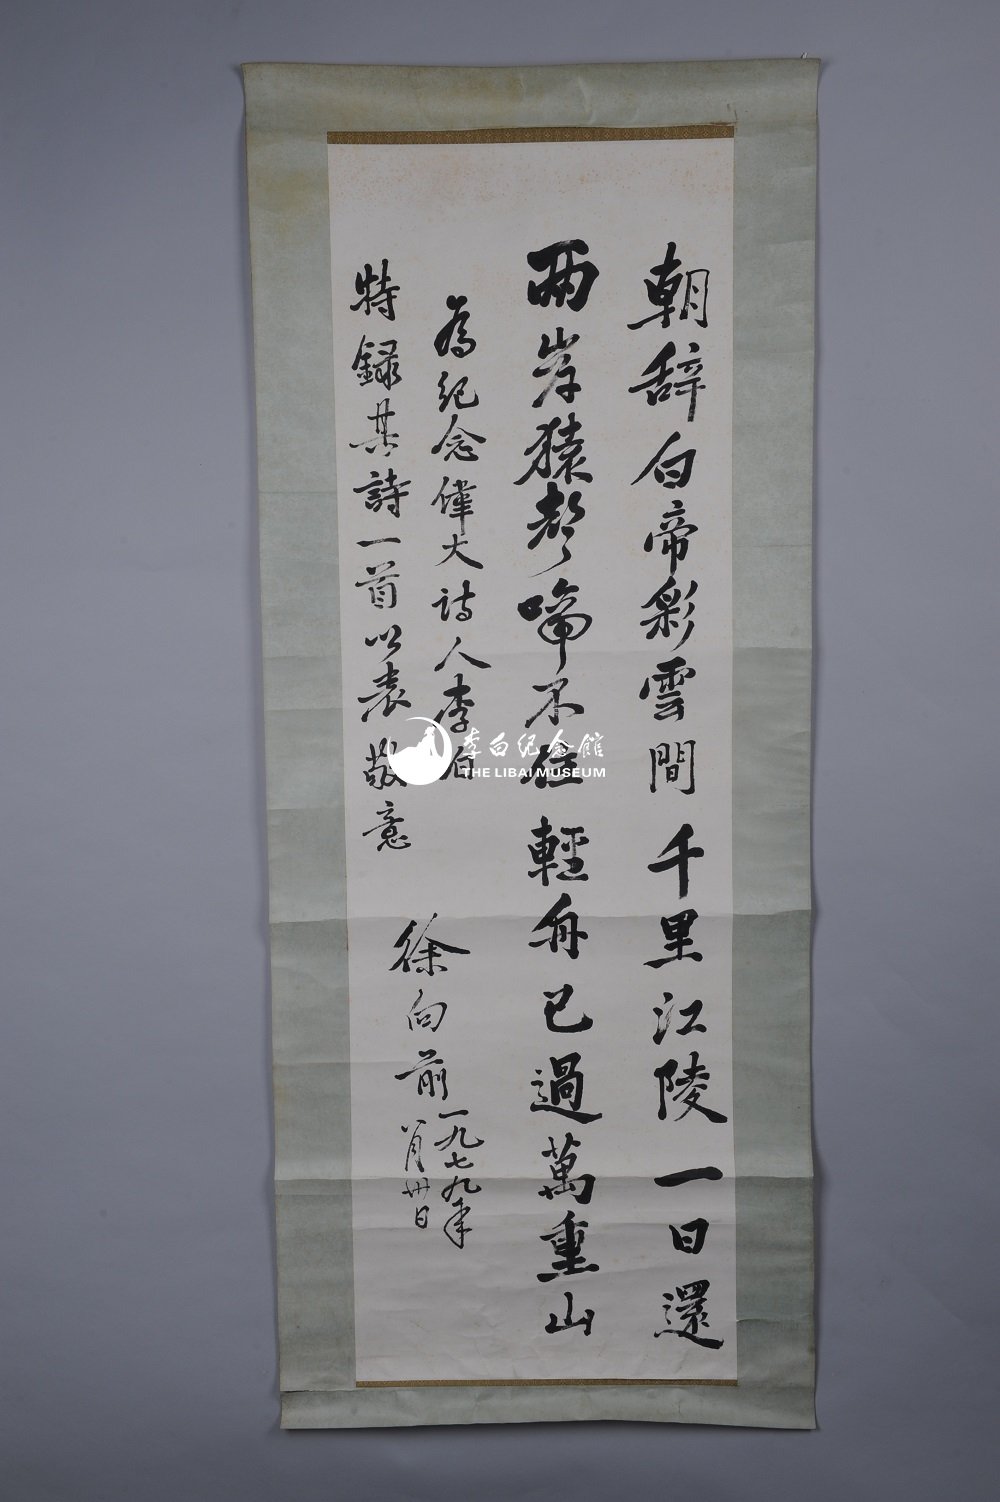 朝辞白帝彩雲間千里江陵一日還
兩岸猿聲啼不住輕舟已過萬重山
為紀念偉大詩人李白
特録其詩一首以表敬意
徐向前
一九七九年
八月卅日
李白纪念館
THE LIBAI MUSEUM